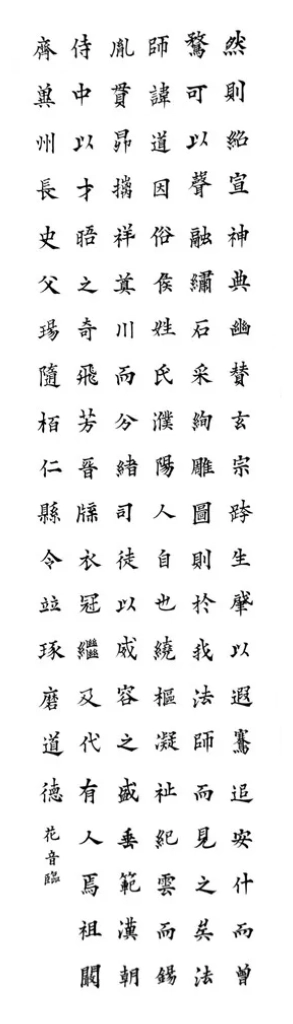 然則紹宣神典幽賛玄宗跨生肇以遐騫追安什而曾
騖可以聲融繡石采絢雕圖則於我法師而見之矣法
師諱道因俗侯姓氏濮陽人自也繞樞凝祉紀雲而錫
胤貫昴摛祥奠川而分緒司徒以威容之盛垂範漢朝
侍中以才晤之奇飛芳晉牒衣冠繼及代有人焉祖闕
齊冀州長史父瑒隨栢仁縣令竝琢磨道德
花音臨